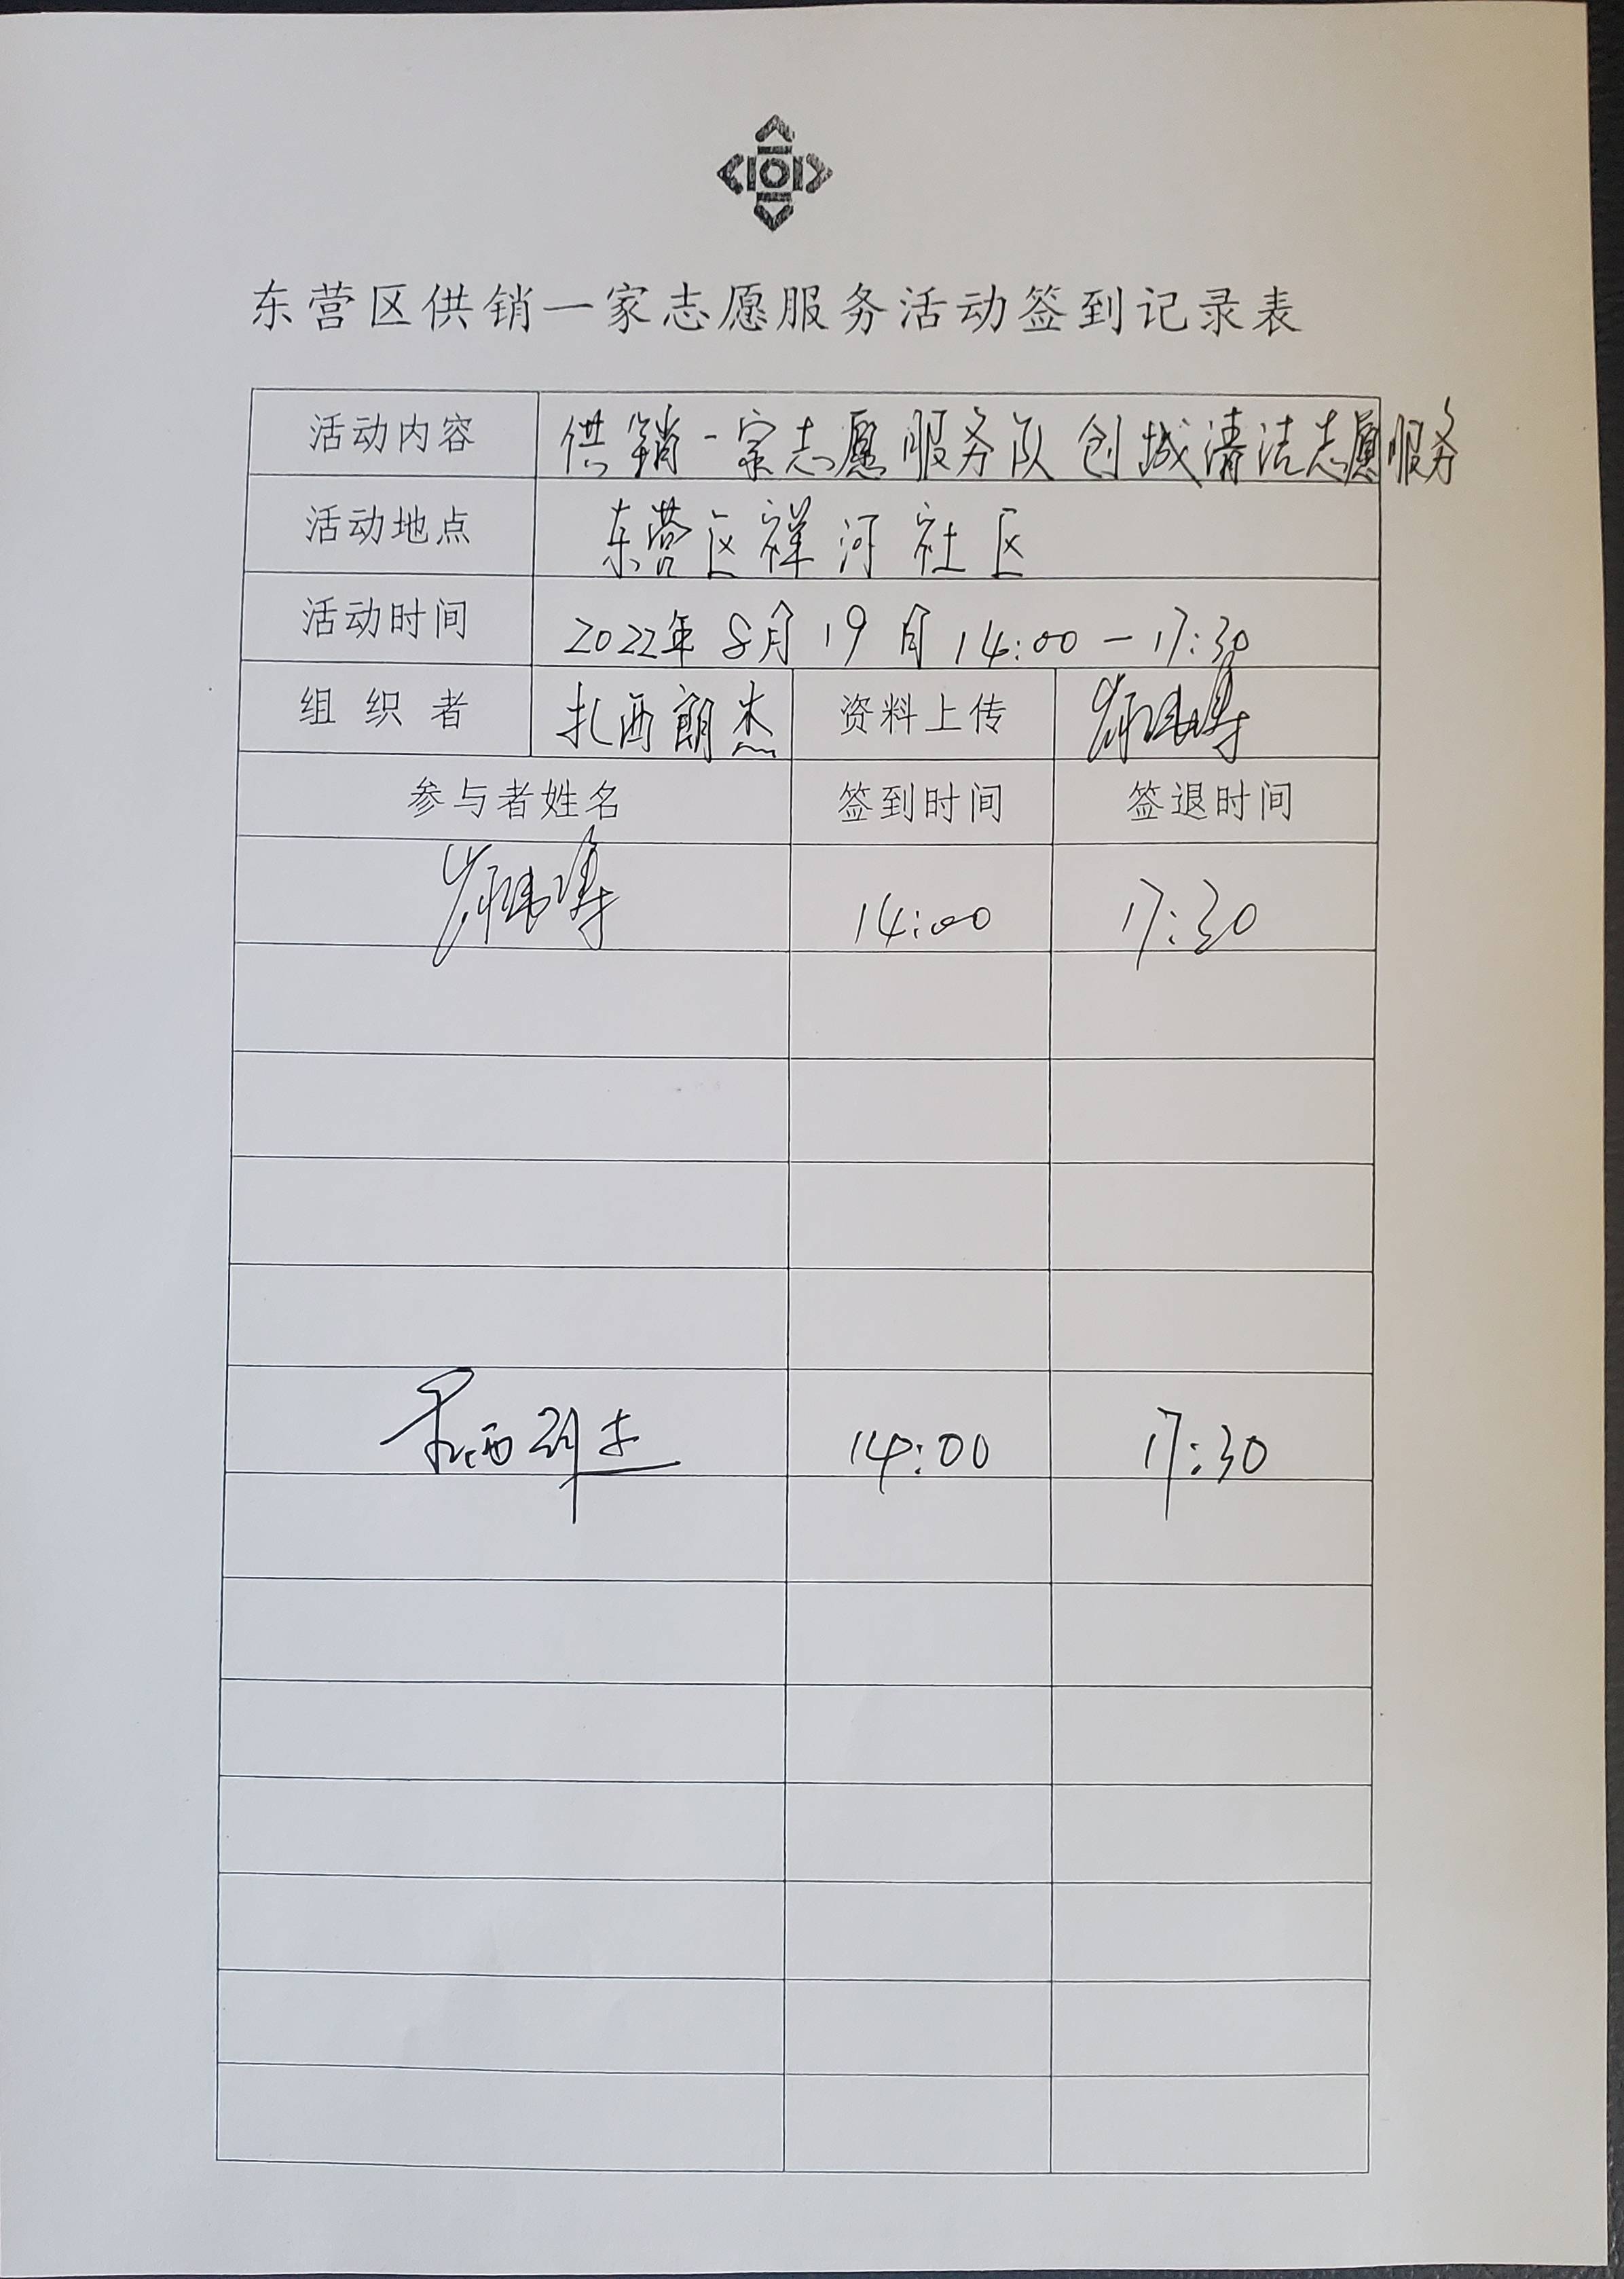 东营区供销一家志愿服务活动签到记录表
活动内容 供销一家志愿服务队创城清洁志愿服务
活动地点 东营区祥河社区
活动时间 2022年8月19日14:00—17:30
组织者 扎西朗杰 资料上传
参与者姓名 签到时间 签退时间
14:00 17:30
扎西朗杰 14:00 17:30